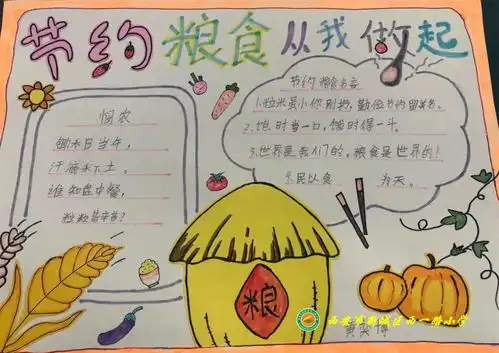 节约粮食从我做起
悯农
锄禾日当午,
汗滴禾下土。
谁知盘中餐,
粒粒皆辛苦?
节约粮食名言
1.粒米虽小你别扔,勤俭节约留美名。
2.饱时省一口,饿时得一斗。
3.世界是我们的,粮食是世界的!
4.民以食 为天。
粮
西安市新城区西一路小学